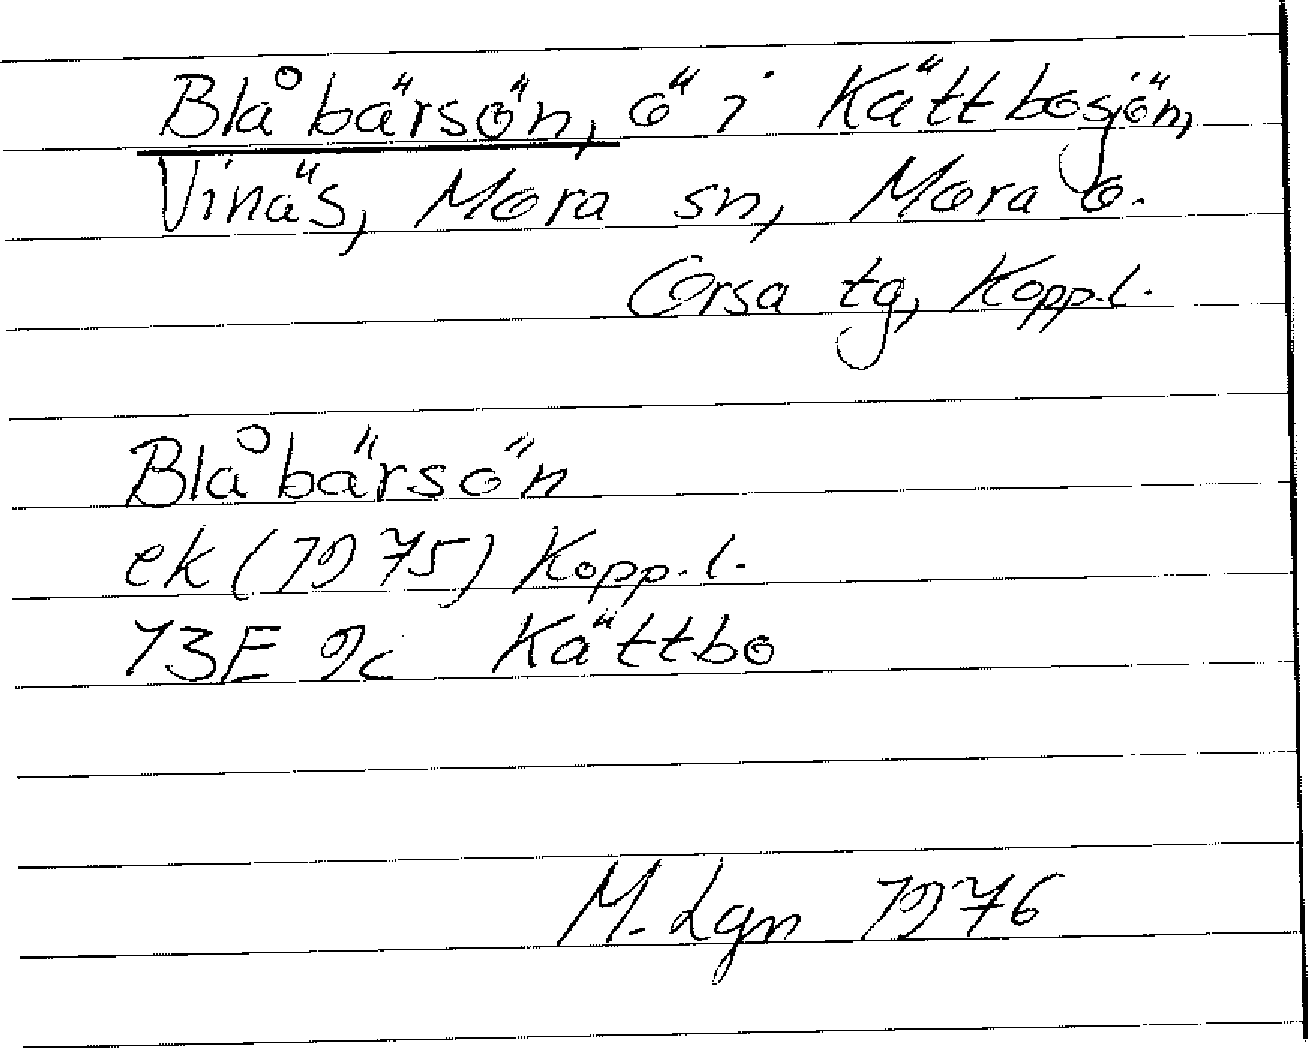 Blåbärsön, ö i Kättbosjön,
Vinäs, Mora sn, Mora o.
Orsa tg, Kopp.l.
Blåbärsön
ek (1975) Kopp.l.
13E 9c Kättbo
M. Lgn 1976